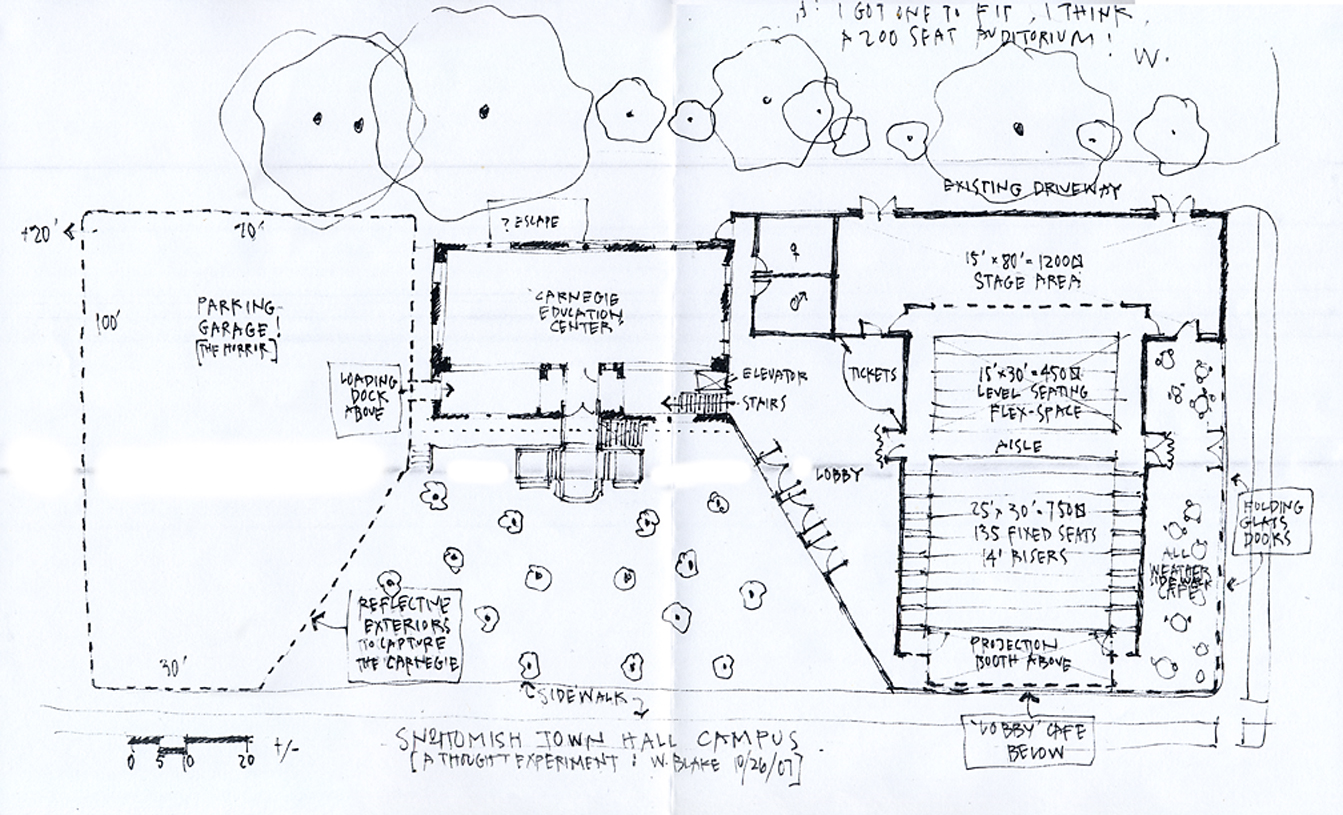 I GOT ONE TO FIT, I THINK
A 200 SEAT AUDITORIUM!
W.
EXISTING DRIVEWAY
+20'
70'
? ESCAPE
100'
PARKING
GARAGE
[THE HORROR]
CARNEGIE
EDUCATION
CENTER
♀
♂
15' x 80' = 1200
STAGE AREA
LOADING
DOCK
ABOVE
ELEVATOR
STAIRS
TICKETS
15' x 30' = 450
LEVEL SEATING
FLEX-SPACE
AISLE
LOBBY
25' x 30' = 750
135 FIXED SEATS
14' RISERS
FOLDING
GLASS
DOORS
ALL
WEATHER
SIDEWALK
CAFE
REFLECTIVE
EXTERIORS
TO CAPTURE
THE CARNEGIE
PROJECTION
BOOTH ABOVE
30'
SIDEWALK
'LOBBY' CAFE
BELOW
0 5 10 20 +/-
SNOHOMISH TOWN HALL CAMPUS
[A THOUGHT EXPERIMENT : W. BLAKE 10/26/07]